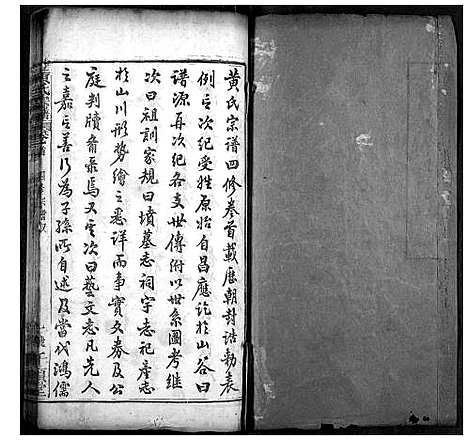 黄氏宗譜四修卷首載歷朝封誥勅表
例之次紀受姓原始自昌應訖於山谷曰
譜源再次紀各支世傳附以世系圖考継
次曰祖訓家規曰墳墓志祠宇志祀產志
於山川形勢繪之悉詳而爭實文券及公
庭判牘備录焉又其次曰藝文志凡先人
之嘉言善行為子孫所自述及當代鴻儒